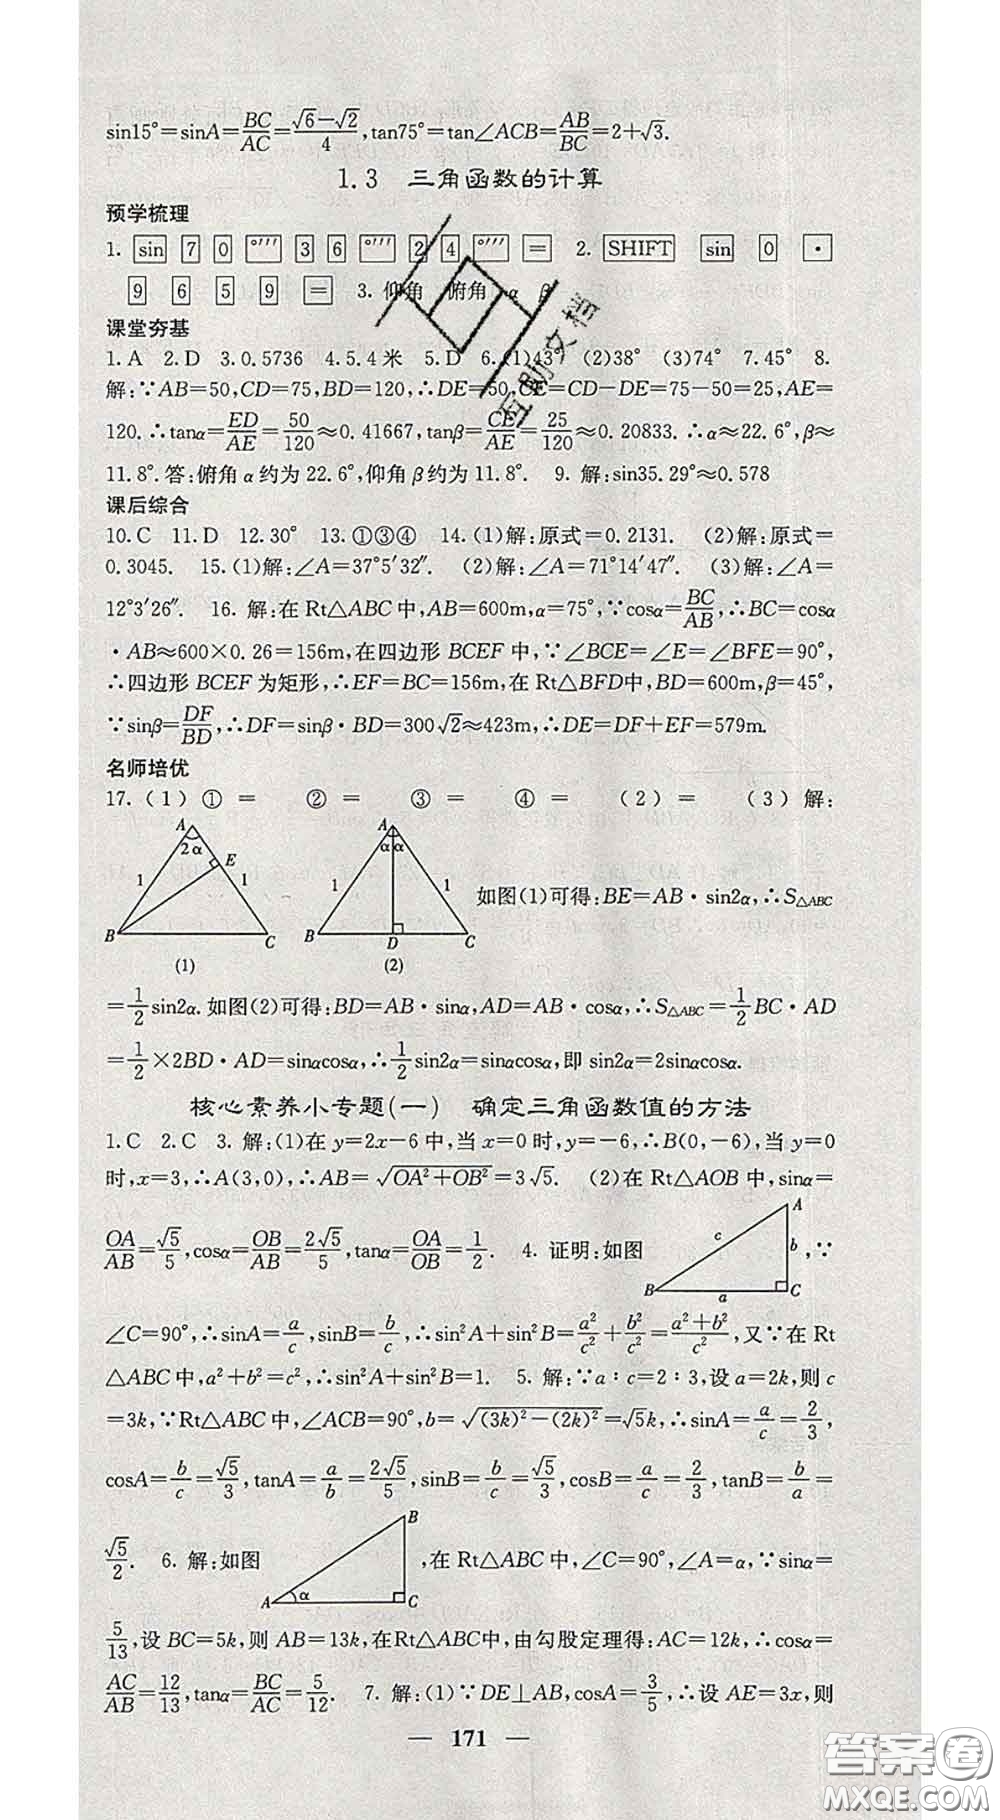 sin15°=sinA=BC/AC=(√6-√2)/4,tan75°=tan∠ACB=AB/BC=2+√3.
1.3 三角函数的计算
预学梳理
1. sin 7 0 °′″ 3 6 °′″ 2 4 °′″ = 2. SHIFT sin 0 ·
9 6 5 9 = 3. 仰角 俯角 α β
课堂夯基
1.A 2.D 3.0.5736 4.5.4米 5.D 6.(1)43° (2)38° (3)74° 7.45° 8.
解:∵AB=50,CD=75,BD=120,∴DE=50,CE=CD-DE=75-50=25,AE=
120.∴tanα=ED/AE=50/120≈0.41667,tanβ=CE/AE=25/120≈0.20833.∴α≈22.6°,β≈
11.8°.答:俯角α约为22.6°,仰角β约为11.8°. 9. 解:sin35.29°≈0.578
课后综合
10.C 11.D 12.30° 13.①③④ 14.(1)解:原式=0.2131. (2)解:原式=
0.3045. 15.(1)解:∠A=37°5′32″. (2)解:∠A=71°14′47″. (3)解:∠A=
12°3′26″. 16. 解:在Rt△ABC中,AB=600m,α=75°,∵cosα=BC/AB,∴BC=cosα
·AB≈600×0.26=156m,在四边形BCEF中,∵∠BCE=∠E=∠BFE=90°,
∴四边形BCEF为矩形,∴EF=BC=156m,在Rt△BFD中,BD=600m,β=45°,
∵sinβ=DF/BD,∴DF=sinβ·BD=300√2≈423m,∴DE=DF+EF=579m.
名师培优
17.(1) ① = ② = ③ = ④ = (2) = (3)解:
A 2α E 1 1 B C (1)
A α α 1 1 B D C (2)
如图(1)可得:BE=AB·sin2α,∴S△ABC
=1/2 sin2α.如图(2)可得:BD=AB·sinα,AD=AB·cosα,∴S△ABC=1/2 BC·AD
=1/2×2BD·AD=sinαcosα,∴1/2 sin2α=sinαcosα,即sin2α=2sinαcosα.
核心素养小专题(一) 确定三角函数值的方法
1.C 2.C 3. 解:(1)在y=2x-6中,当x=0时,y=-6,∴B(0,-6),当y=0
时,x=3,∴A(3,0),∴AB=√(OA²+OB²)=3√5. (2)在Rt△AOB中,sinα=
OA/AB=√5/5,cosα=OB/AB=2√5/5,tanα=OA/OB=1/2. 4. 证明:如图 A c b B a C ,∵
∠C=90°,∴sinA=a/c,sinB=b/c,∴sin²A+sin²B=a²/c²+b²/c²=(a²+b²)/c²,又∵在Rt
△ABC中,a²+b²=c²,∴sin²A+sin²B=1. 5. 解:∵a∶c=2∶3,设a=2k,则c
=3k,∵Rt△ABC中,∠ACB=90°,b=√((3k)²-(2k)²)=√5k,∴sinA=a/c=2/3,
cosA=b/c=√5/3,tanA=a/b=2√5/5,sinB=b/c=√5/3,cosB=a/c=2/3,tanB=b/a=
√5/2. 6. 解:如图 B A α C ,在Rt△ABC中,∠C=90°,∠A=α,∵sinα=
5/13,设BC=5k,则AB=13k,在Rt△ABC中,由勾股定理得:AC=12k,∴cosα=
AC/AB=12/13,tanα=BC/AC=5/12. 7. 解:(1)∵DE⊥AB,cosA=3/5,∴设AE=3x,则
— 171 —
互助文档
答案圈
MXQE.COM